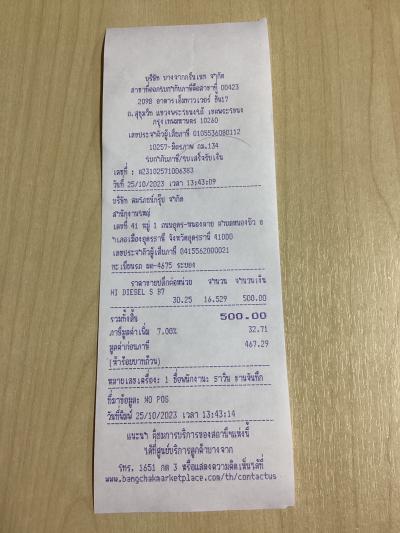 บริษัท บางจากกรีนเนท จำกัด
สาขาที่ออกใบกำกับภาษีคือสาขาที่ 00423
2098 อาคารเอ็มทาวเวอร์ ชั้น7
ถ.สุขุมวิท แขวงพระโขนงใต้ เขตพระโขนง
กรุงเทพมหานคร 10260
เลขประจำตัวผู้เสียภาษี 0105536080112
10257-มิตรภาพ กม.134
ใบกำกับภาษี/ใบเสร็จรับเงิน
เลขที่ : 02310257100
วันที่ 25/10/2023 เวลา 13:43:09
บริษัท สมรภยณ์กรุ๊ป จำกัด
สำนักงานใหญ่
เลขที่ 41 หมู่ 1 ถนนอุดร-หนองคาย ตำบลหนองบัว อ
ำเภอเมืองอุดรธานี จังหวัดอุดรธานี 41000
เลขประจำตัวผู้เสียภาษี 0415562000021
ทะเบียนรถ ผต-4675 ระยอง
ราคาขายปลีกต่อหน่วย จำนวน จำนวนเงิน
HI DIESEL S B7
30.25 16.529 500.00
รวมทั้งสิ้น 500.00
ภาษีมูลค่าเพิ่ม 7.00% 32.71
มูลค่าก่อนภาษี 467.29
(ห้าร้อยบาทถ้วน)
หมายเลขเครื่อง: 1 ชื่อพนักงาน: ราวิน ชานจันทึก
ที่มาข้อมูล: MO POS
วันที่พิมพ์ 25/10/2023 เวลา 13:43:14
แนะนำ ติชมการบริการของสถานีฯแห่งนี้
ได้ที่ศูนย์บริการลูกค้าบางจาก
โทร. 1651 กด 3 หรือแสดงความคิดเห็นได้ที่
www.bangchakmarketplace.com/th/contactus